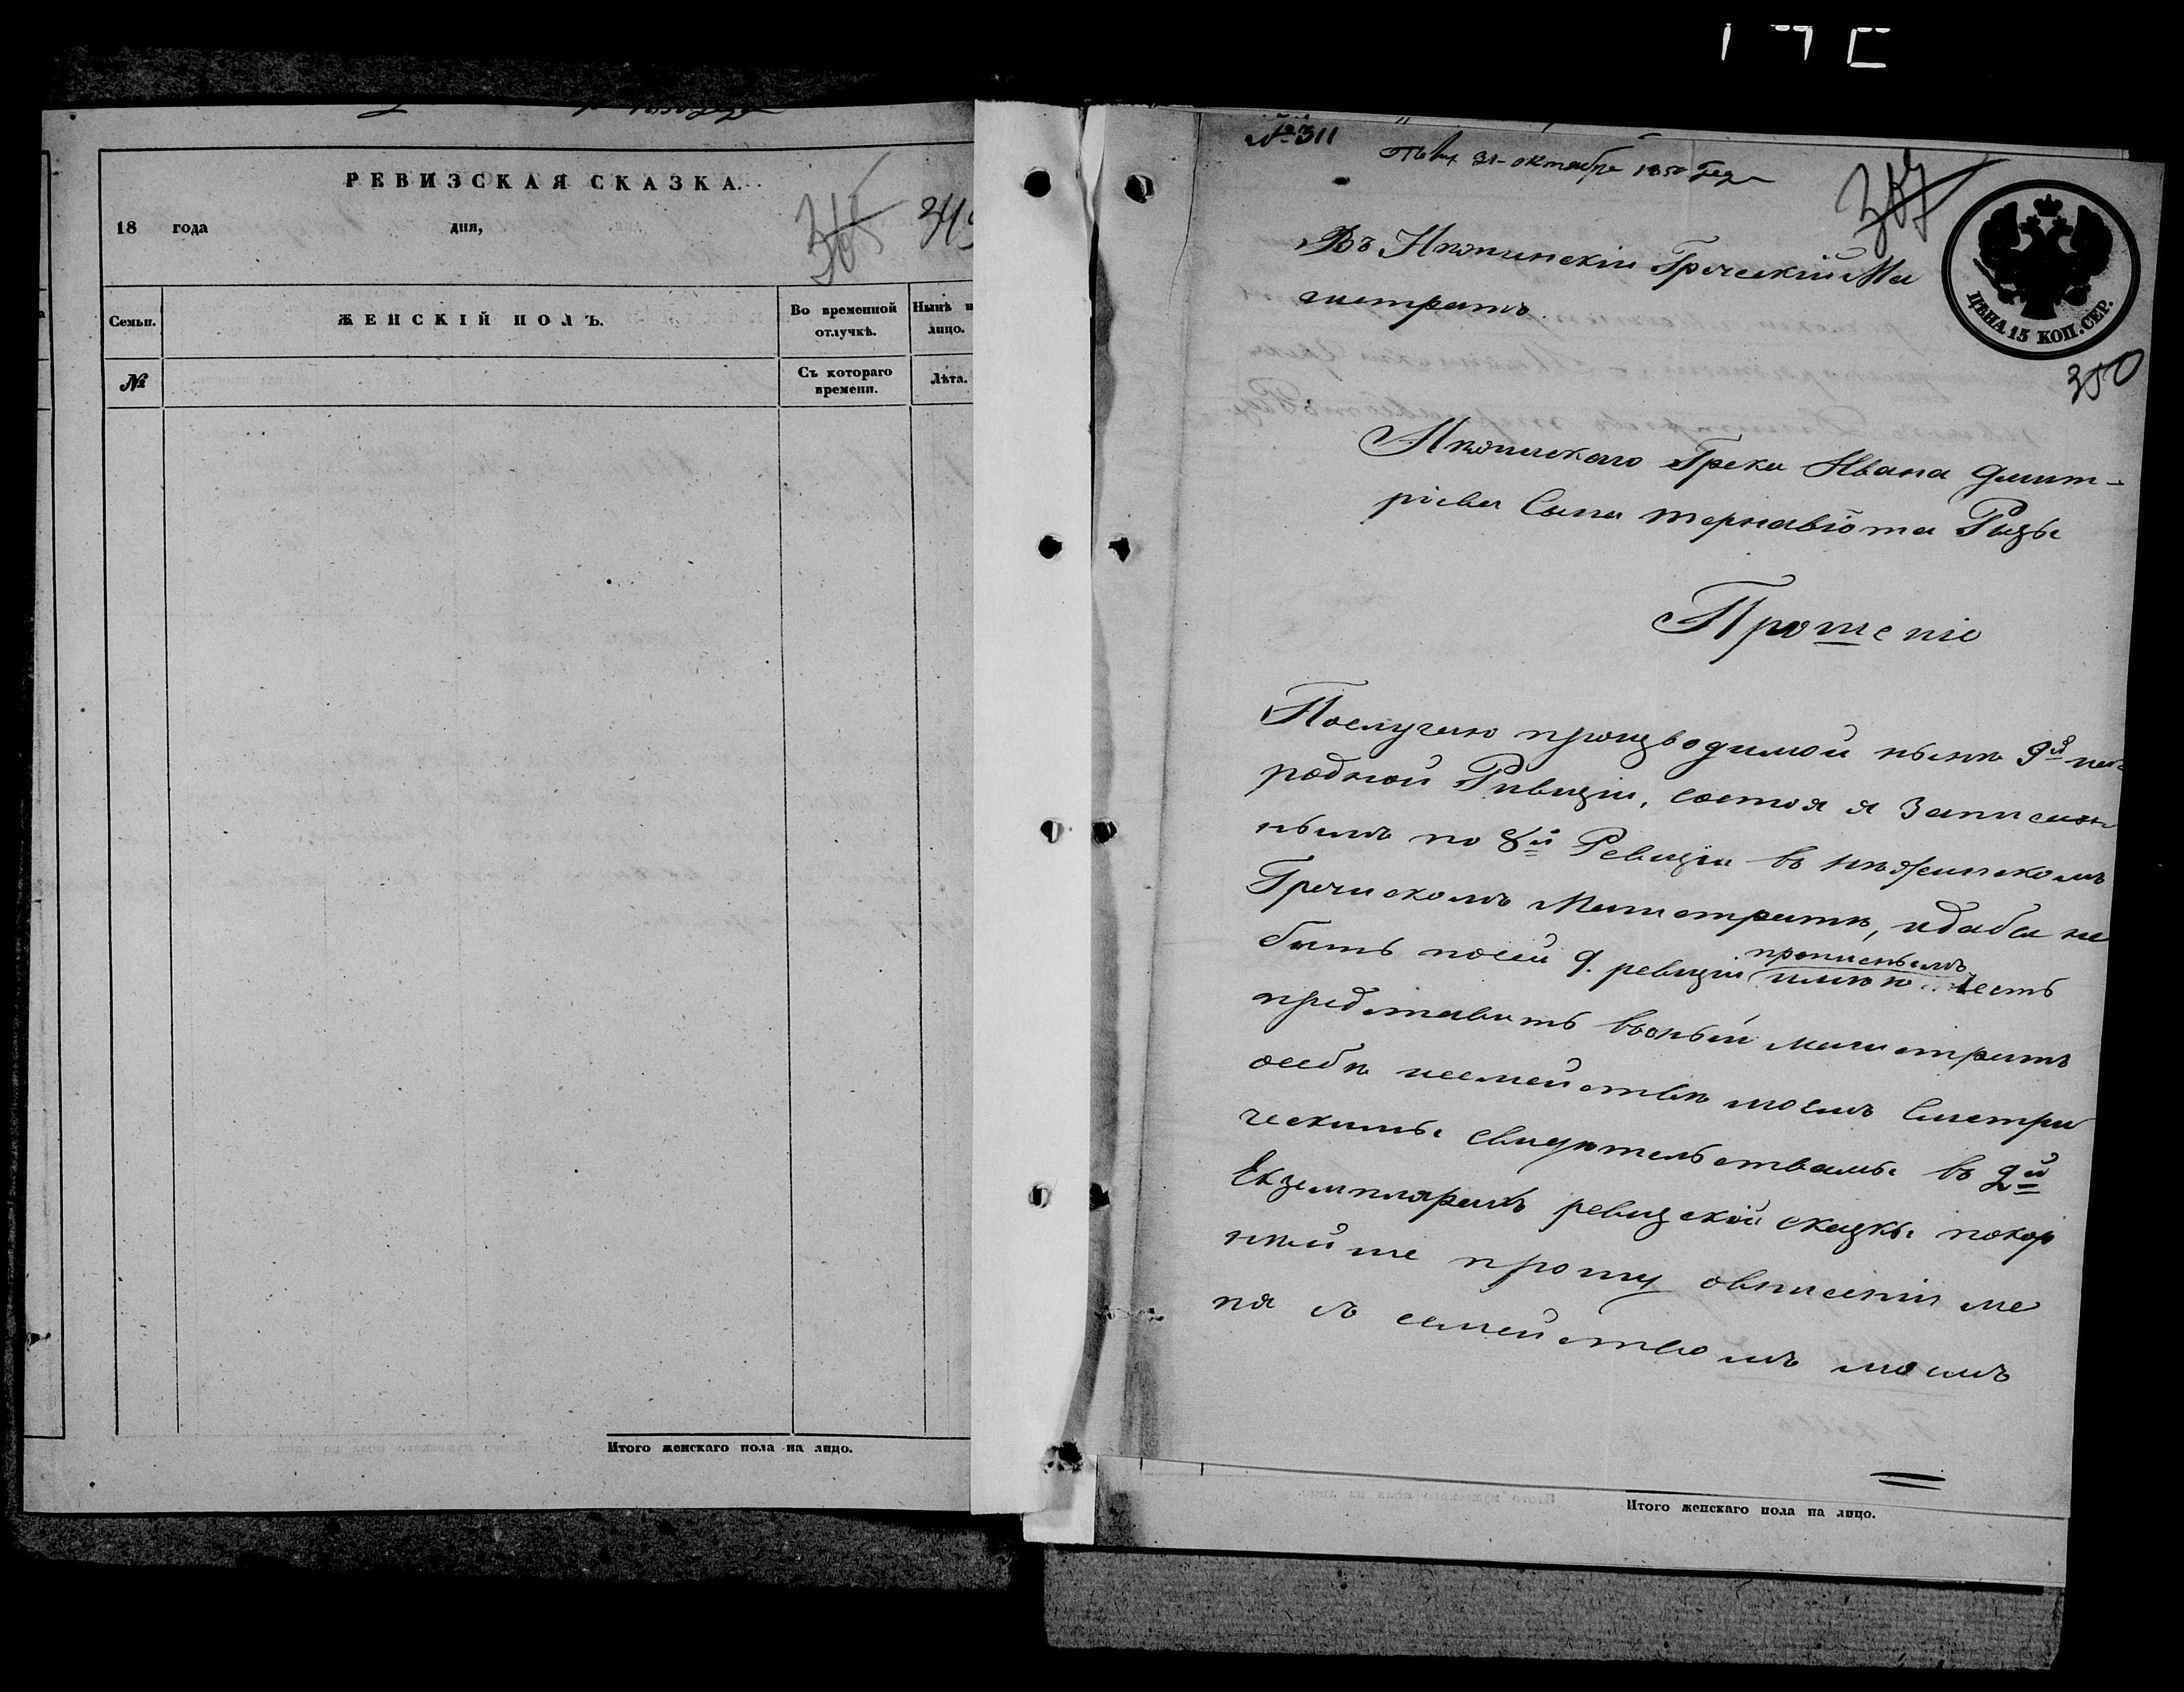 РЕВИЗСКАЯ СКАЗКА.
18 года дня,
Семьи.
ЖЕНСКІЙ ПОЛЪ.
Во временной отлучкѣ.
Нынѣ н
лицо.
№
Съ котораго времени.
Лѣта.
Итого женскаго пола на лицо.
№ 311
31 октября 1850 года
Въ Нѣжинскій Греческій Ма
гистратъ.
ЦѢНА 15 КОП. СЕР.
350
Нѣжинскаго Грека Ивана Дмит-
ріева Сына Тернавіота Ризы
Прошеніе
Послучаю производимой нынѣ 9й на
родной Ривизіи, состоя я записан
нымъ по 8й Ревизіи въ Нѣжинскомъ
Гречискомъ Магистратѣ, идабы не
быть посей 9. ревизіи прописнымъ
имѣю честь
представить вооный магистратъ
осебѣ исемействѣ моемъ Сметри
ческимы свидѣтельствамы въ 2й
Екземплярахъ ревизской сказкы покор
нѣйше прошу овнисеніи ме
ня съ семействомъ моимъ
Итого женскаго пола на лицо.